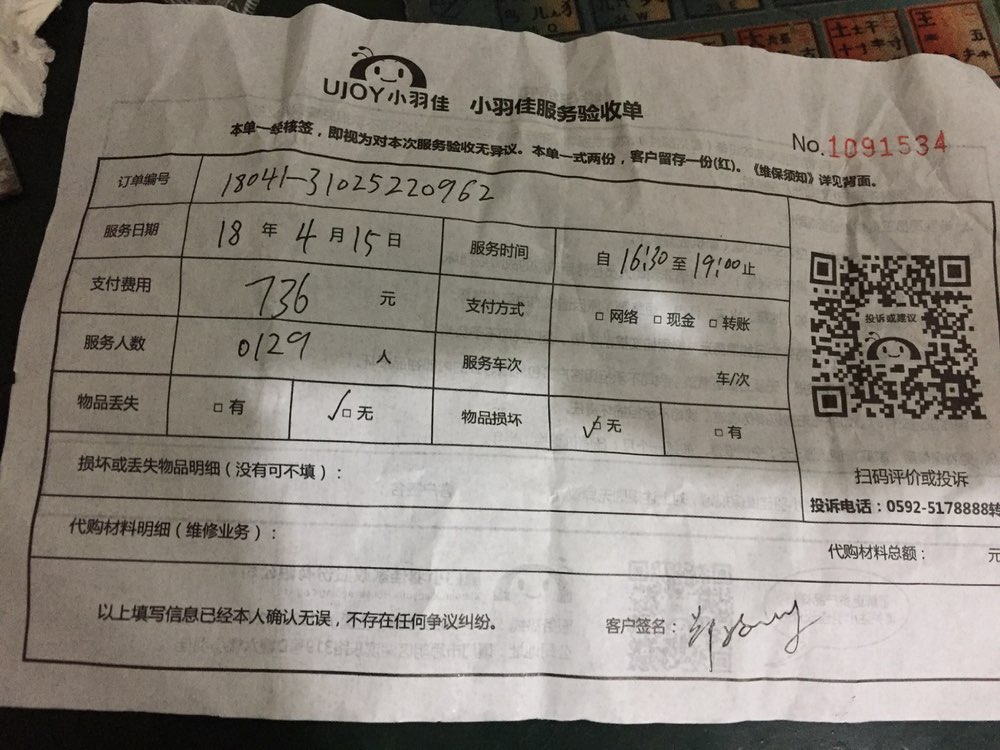 UJOY小羽佳 小羽佳服务验收单
No.1091534
本单一经核签，即视为对本次服务验收无异议。本单一式两份，客户留存一份(红)。《维保须知》详见背面。
订单编号 18041-31025220962
服务日期 18 年 4 月 15 日 服务时间 自 16:30 至 19:00 止
支付费用 736 元 支付方式 □ 网络 □ 现金 □ 转账
服务人数 0129 人 服务车次 车/次
物品丢失 □ 有 ✓□ 无 物品损坏 ✓□ 无 □ 有
投诉或建议
扫码评价或投诉
投诉电话：0592-5178888转
损坏或丢失物品明细（没有可不填）：
代购材料明细（维修业务）： 代购材料总额： 元
以上填写信息已经本人确认无误，不存在任何争议纠纷。 客户签名：